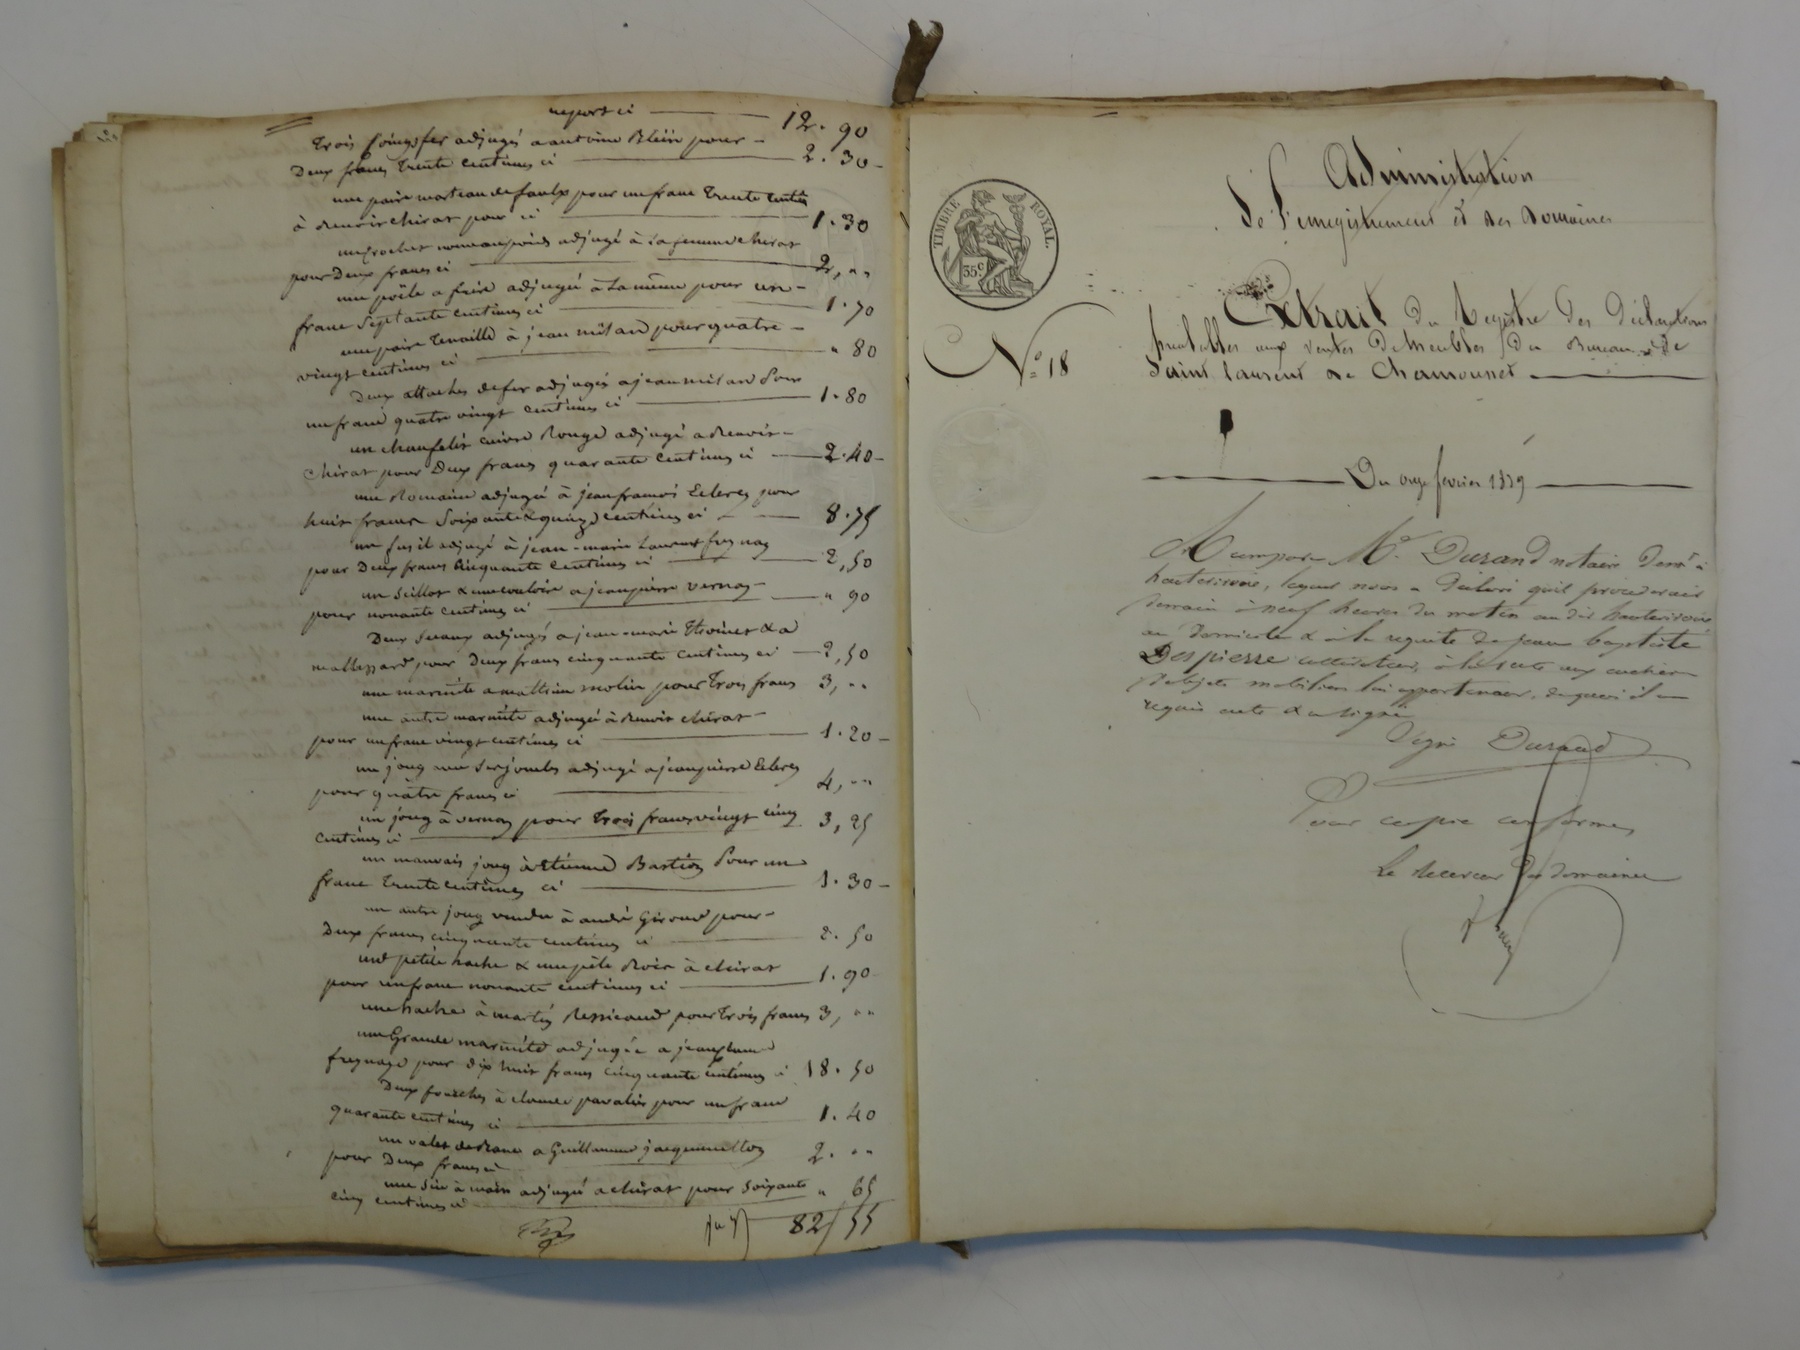 report ci 12. 90
trois adjugés a antoine Blein pour
Deux francs trente centimes ci 2. 30
une paire marteau de faulx pour un franc trente cent.
à Benoir chirat pour ci 1. 30
un crochet adjugé à la femme chirat
pour Deux francs ci 2, "
une poële a frire adjugée à la même pour un
franc septante centimes ci 1. 70
une paire tenaille à jean milan pour quatre
vingt centimes ci " 80
Deux attaches de fer adjugés a jean milan pour
un franc quatre vingt centimes ci 1. 80
un cuivre rouge adjugé a Benoir
chirat pour Deux francs quarante centimes ci 2. 40
une Romaine adjugée à jean francois pour
huit francs soixante & quinze centimes ci 8. 75
un fusil adjugé à jean marie Laurent
pour Deux francs Cinquante centimes ci 2, 50
un seillot & à jean pierre vernay
pour nonante centimes ci " 90
Deux seaux adjugés a jean marie & a
pour Deux francs cinquante centimes ci 2, 50
une marmite a mathieu molin pour trois francs 3, "
une autre marmite adjugée à Benoit chirat
pour un franc vingt centimes ci 1. 20
un joug adjugé a jean pierre
pour quatre francs ci 4, "
un joug à vernay pour trois francs vingt cinq
centimes ci 3, 25
un mauvais joug à étienne Bastion pour un
franc trente centimes ci 1. 30
un autre joug vendu à andré Giroud pour
Deux francs cinquante centimes ci 2. 50
une petite hache & une à chirat
pour un franc nonante centimes ci 1. 90
une hache à martin pour trois francs 3, "
une Grande marmite adjugée a jean
pour dix huit francs cinquante centimes ci 18. 50
Deux fourches à pour un franc
quarante centimes ci 1. 40
un valet a Guillaume jacquemetton
pour Deux francs ci 2. "
une à main adjugée a chirat pour soixante
cinq centimes ci " 65
82 / 55
TIMBRE ROYAL.
35 c
N° 18
Administration
De l'enregistrement et des Domaines
Extrait du Registre des Déclarations
préalables aux ventes De Meubles du Bureau de
Saint Laurent de Chamousset
Du onze février 1839
Me. Durand notaire dem.t à
hauterivoire, lequel nous a déclaré qu'il procéderait
demain à neuf heures du matin au dit hauterivoire
au domicile & à la requête de jean baptiste
Despierre cultivateur, à la vente aux enchères
d'objets mobiliers lui appartenant, de quoi il a
requis acte & a signé
Signé Durand
Pour copie conforme
Le Receveur des domaines